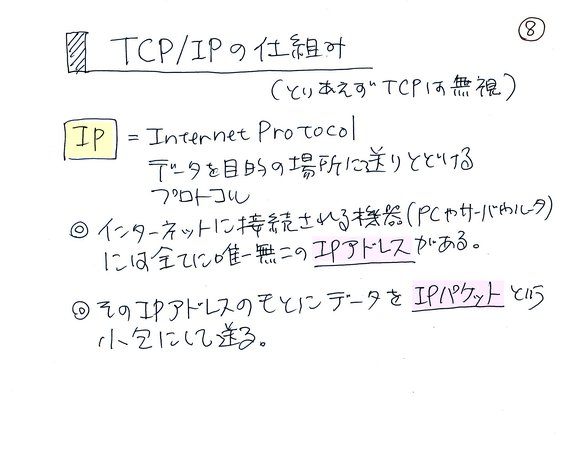 ⑧
TCP/IPの仕組み
(とりあえずTCPは無視)
IP = Internet Protocol
データを目的の場所に送りとどける
プロトコル
◎ インターネットに接続される機器(PCやサーバやルータ)
には全てに唯一無二のIPアドレスがある。
◎ そのIPアドレスのもとにデータをIPパケットという
小包にして送る。